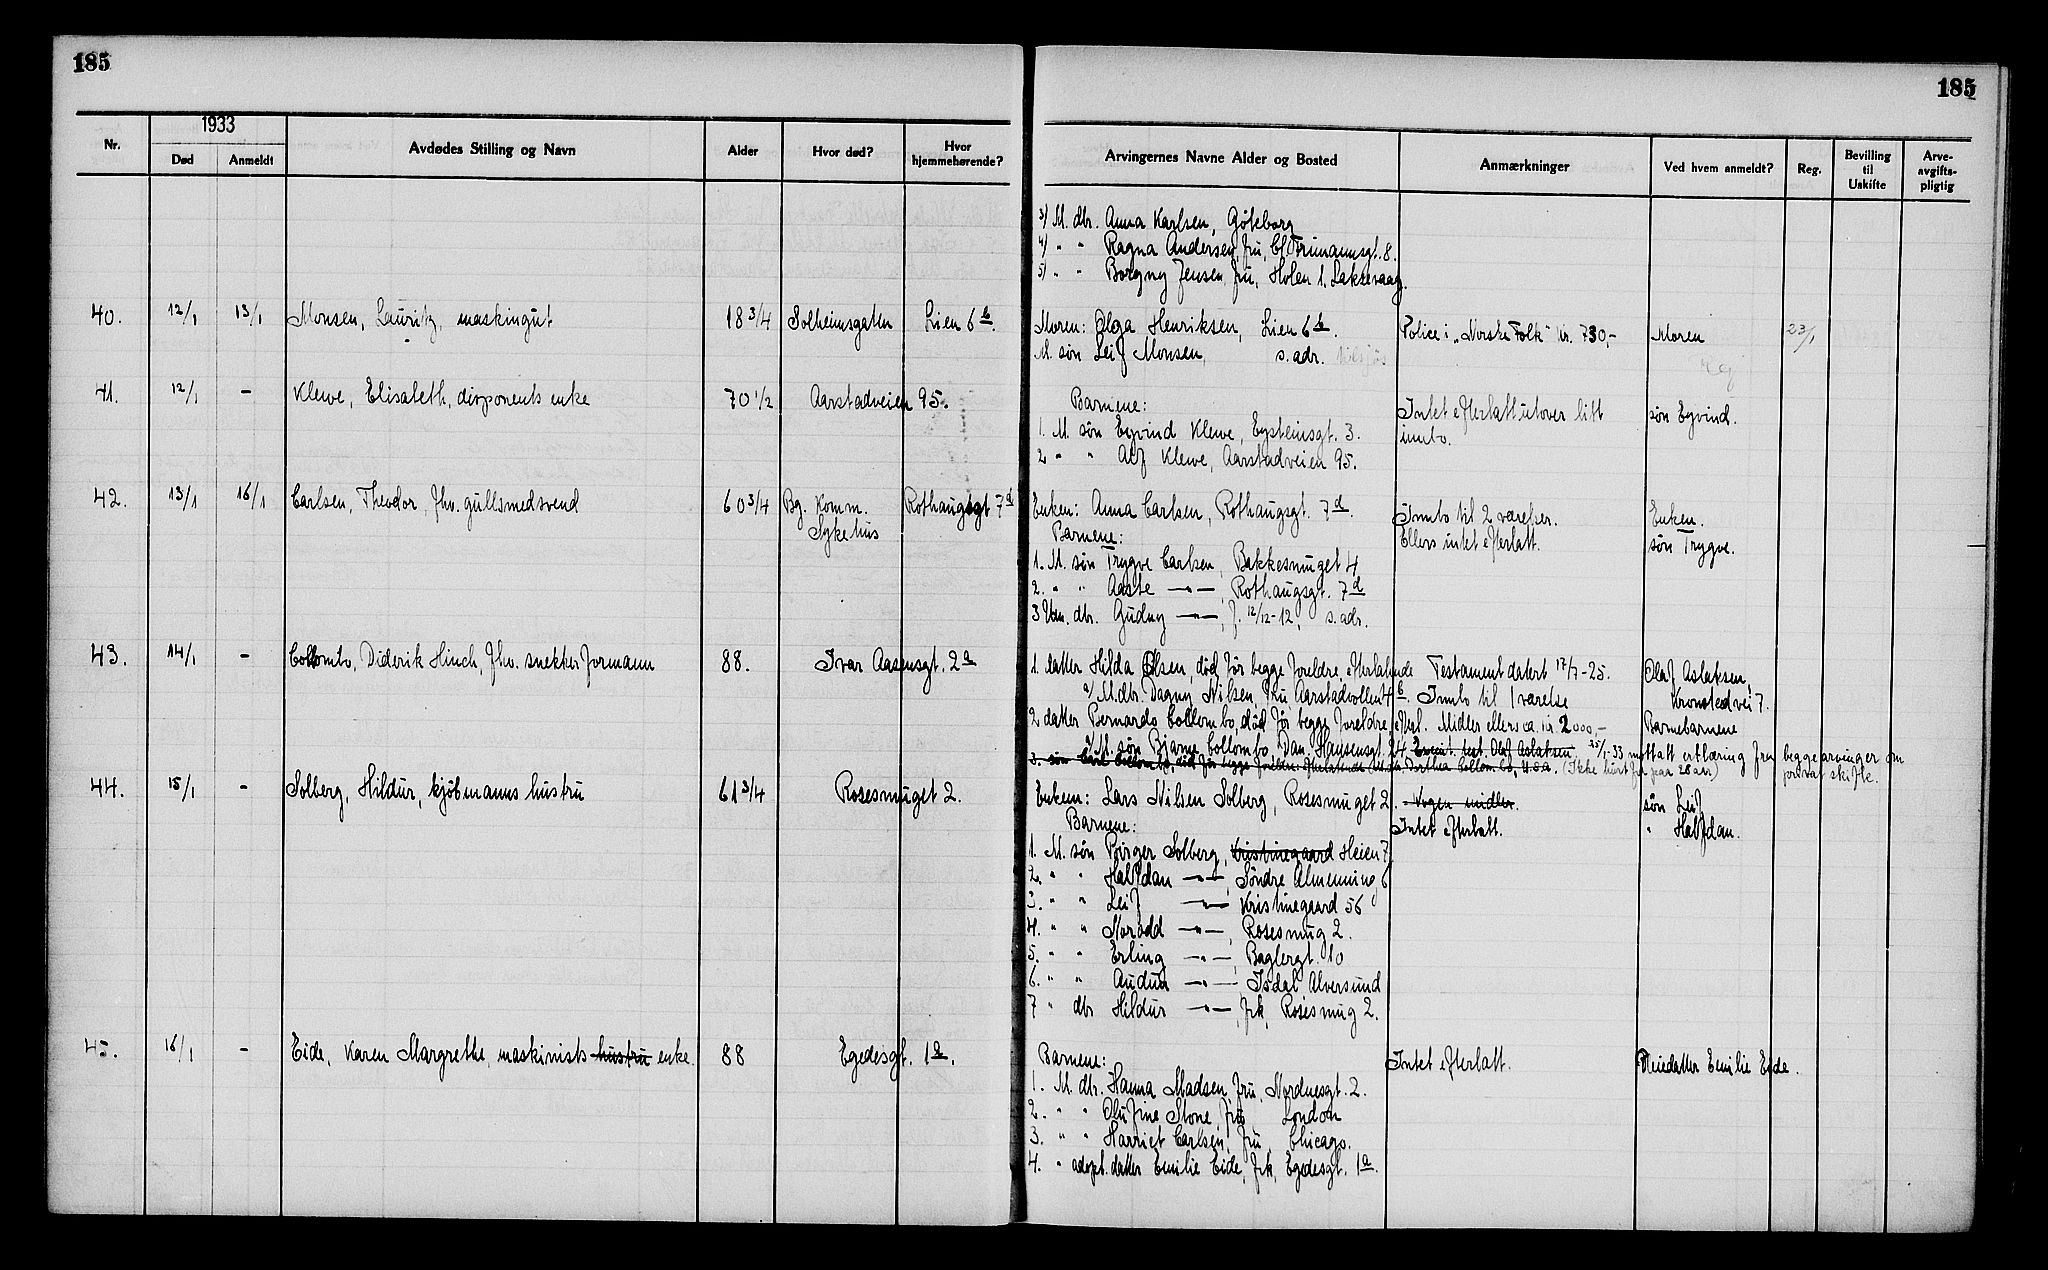 185
185
1933
Nr.
Død
Anmeldt
Avdødes Stilling og Navn
Alder
Hvor død?
Hvor hjemmehørende?
Arvingernes Navne Alder og Bosted
Anmærkninger
Ved hvem anmeldt?
Reg.
Bevilling til Uskifte
Arve-avgifts-pligtig
3) M. dtr. Anna Karlsen, Gøteborg
4) " " Ragna Andersen, fru, Cl. Frimannsgt. 8.
5) " " Borgny Jensen, fru, Holen 1, Laksevaag.
40. 12/1 13/1 Monsen, Lauritz, maskingut 18 3/4 Solheimsgaten Lien 6 b.
Moren: Olga Henriksen, Lien 6 b. Police i "Norske Folk" kr. 730,- Moren 23/1
M. søn Leif Monsen, s. adr. tilsjøs
41. 12/1 - Klewe, Elisabeth, disponents enke 70 1/2 Aarstadveien 95.
Barnene: Intet efterlatt utover litt søn Eyvind.
1. M. søn Eyvind Klewe, Eysteinsgt. 3. innbo.
2 " " Alf Klewe, Aarstadveien 95.
42. 13/1 16/1 Carlsen, Theodor, fhv. gullsmedsvend 60 3/4 Bg. Komm. Sykehus Rothaugsgt 7 d
Enken: Anna Carlsen, Rothaugsgt. 7 d. Innbo til 2 værelser. Enken.
Barnene: Ellers intet efterlatt. søn Trygve.
1. M. søn Trygve Carlsen, Bakkesmuget 4
2. " " Aaste -"-, Rothaugsgt. 7 d
3 Um. dtr. Gudny -"-, f. 12/12-12, s. adr.
43. 14/1 - Collombo, Diderik Hinch, fhv. snekkerformann 88. Ivar Aasensgt. 2 a
1. datter Hilda Olsen, død før begge foreldre, efterlatende Testament datert 17/7-25. Olaf Aslaksen,
a/ M. dtr. Dagny Nilsen, fru Aarstadvollen 4 b. Innbo til 1 værelse Kronstadvei 7.
2 datter Bernardo Collombo, død før begge foreldre, efterl. Midler ellers ca. kr. 2000,- Barnebarnene
a/ M. søn Bjarne Collombo, Dan. Hansensgt. 24 Execut. test. Olaf Aslaksen 25/1-33 mottatt erklæring fra begge arvinger om privat skifte.
3. søn Carl Collombo, død før begge foreldre. Dorthea Collombo, U.S.A. (Ikke hørt fra paa 28 aar)
44. 15/1 - Solberg, Hildur, kjøbmanns hustru 61 3/4 Rosesmuget 2.
Enkem: Lars Nilsen Solberg, Rosesmuget 2. Nogen midler. søn Leif
Barnene: Intet efterlatt. " Halfdan.
1. M. søn Birger Solberg, Kristinegaard Heien 7
2. " " Halfdan -"-, Søndre Almenning 6
3. " " Leif -"- Kristinegaard 56
4. " " Norodd -"-, Rosesmug 2.
5. " " Erling -"-, Baglergt. 10
6. " " Audun -"- Isdal Alversund
7 " dtr Hildur -"-, frk, Rosesmug 2.
45. 16/1 - Eide, Karen Margrethe, maskinists hustru enke. 88 Egedesgt. 1 a.
Barnene: Intet efterlatt. Pleiedatter Emilie Eide.
1. M. dtr. Hanna Madsen, fru, Nordnesgt. 2.
2. " " Olufine Stone, fru London
3. " " Harriet Carlsen, fru, Chicago.
4. " adopt. datter Emilie Eide, frk, Egedesgt. 1 a.